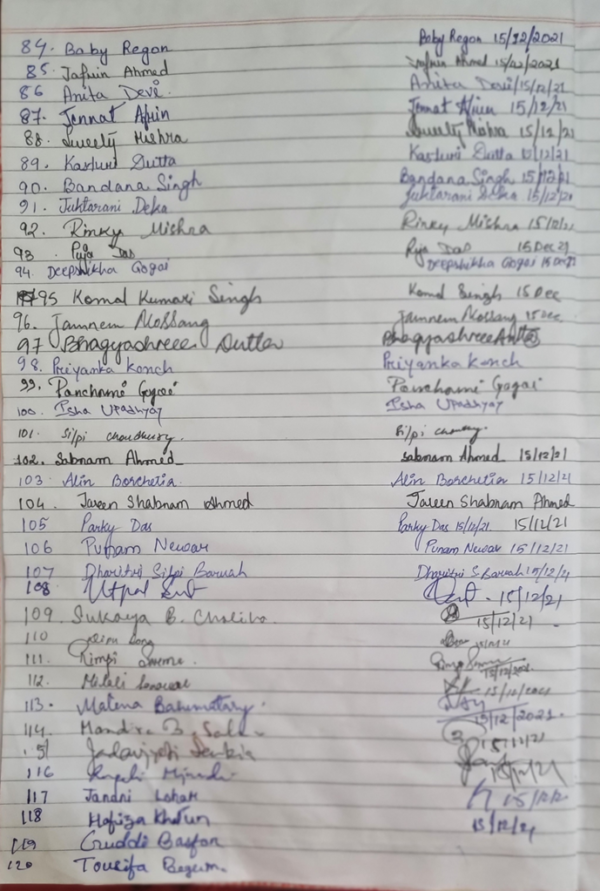 84. Baby Regon Baby Regon 15/12/2021
85. Jafrin Ahmed Ahmed 15/12/2021
86 Anita Devi. Anita Devi/15/12/21
87. Jennat Afrin Jennat Afrin 15/12/21
88. Sweety Mishra Sweety Mishra 15/12/21
89. Kasturi Dutta Kasturi Dutta 15/12/21
90. Bandana Singh Bandana Singh 15/12/21
91. Juktarani Deka Juktarani Deka 15/12/21
92. Rinky Mishra Rinky Mishra 15/12/21
93 Puja Das Puja Das 15 Dec 21
94. Deepshikha Gogoi Deepshikha Gogoi 15 Dec 21
95 Komal Kumari Singh Komal Singh 15 Dec
96. Jamnem Mossang Jamnem Mossang 15 Dec
97 Bhagyashreee Dutta Bhagyashreee Dutta
98. Priyanka Konch Priyanka Konch
99. Panchami Gogoi Panchami Gogoi
100. Isha Upadhyay Isha Upadhyay
101. Silpi choudhury. Silpi
102. Sabnam Ahmed Sabnam Ahmed 15/12/21
103 Alin Borchetia Alin Borchetia 15/12/21
104. Jareen Shabnam Ahmed Jareen Shabnam Ahmed
105 Parky Das Parky Das 15/12/21 15/12/21
106 Punam Newar Punam Newar 15/12/21
107 Dharitri Silpi Baruah Dharitri S Baruah 15/12/21
108 Utpal 15/12/21
109. Sukanya B. Chaliha 15/12/21.
110
111. Rimpi 15/12/2021
112. 15/12/2021
113. Malina Basumatary.
114. Mandira B. 15/12/2021
15/12/21
116 15/12/21
117 Janani Lohar 15/12/2
118 Hafiza Khatun 15/12/21
119 Guddi Basfor
120 Tousifa Begum.